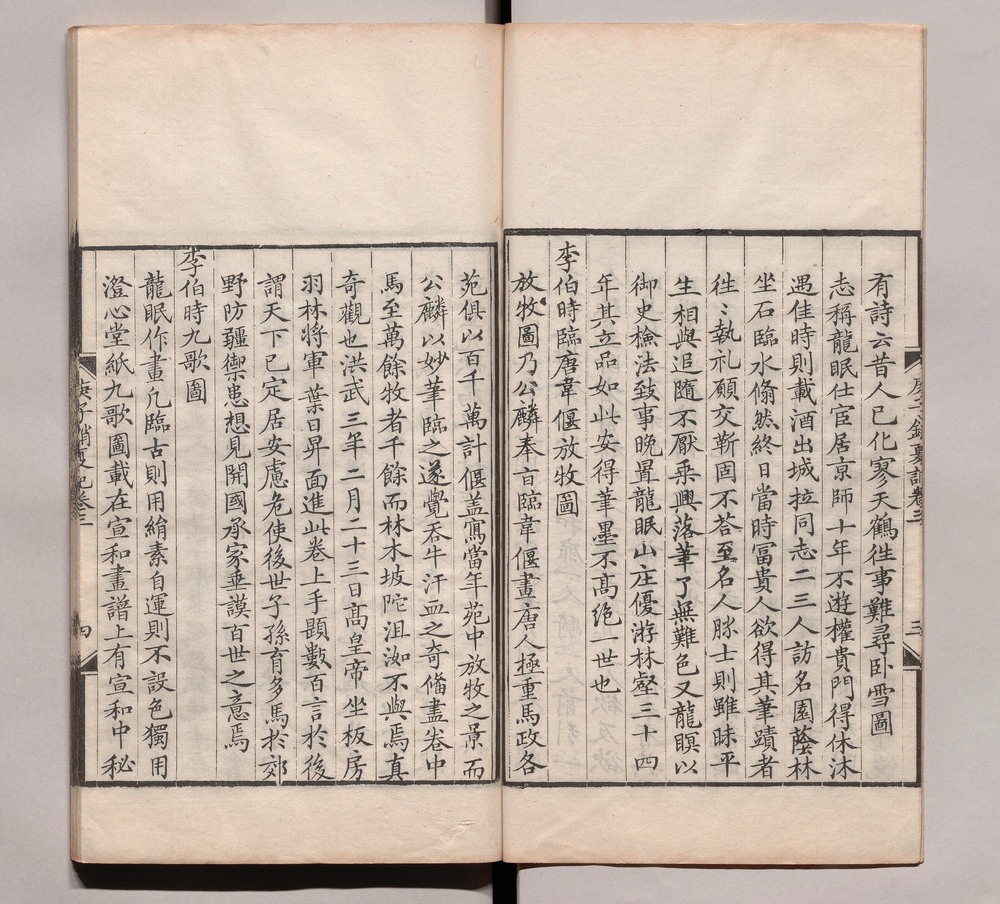 有詩云昔人已化寥天鶴徃事難尋卧雪圖
志稱龍眠仕宦居京師十年不遊權貴門得休沐
遇佳時則載酒出城拉同志二三人訪名園蔭林
坐石臨水翛然終日當時冨貴人欲得其筆蹟者
徃〻執礼願交靳固不荅至名人勝士則雖昧平
生相與追隨不厭乘興落筆了無難色又龍瞑以
御史檢法致事晚置龍眠山庄優游林壑三十四
年其立品如此安得筆墨不髙絶一世也
李伯時臨唐韋偃放牧圖
放牧圖乃公麟奉旨臨韋偃畫唐人極重馬政各
苑俱以百千萬計偃葢寫當年苑中放牧之景而
公麟以妙筆臨之遂覺吞牛汗血之奇備盡卷中
馬至萬餘牧者千餘而林木坡陀沮洳不與焉真
奇觀也洪武三年二月二十三日髙皇帝坐板房
羽林将軍葉日昇面進此卷上手題數百言於後
謂天下已定居安慮危使後世子孫育多馬於郊
野防疆禦患想見開國承家垂謨百世之意焉
李伯時九歌圖
龍眠作畫凡臨古則用絹素自運則不設色獨用
澄心堂紙九歌圖載在宣和畫譜上有宣和中秘
庚子銷夏記卷三
三
庚子銷夏記卷三
四